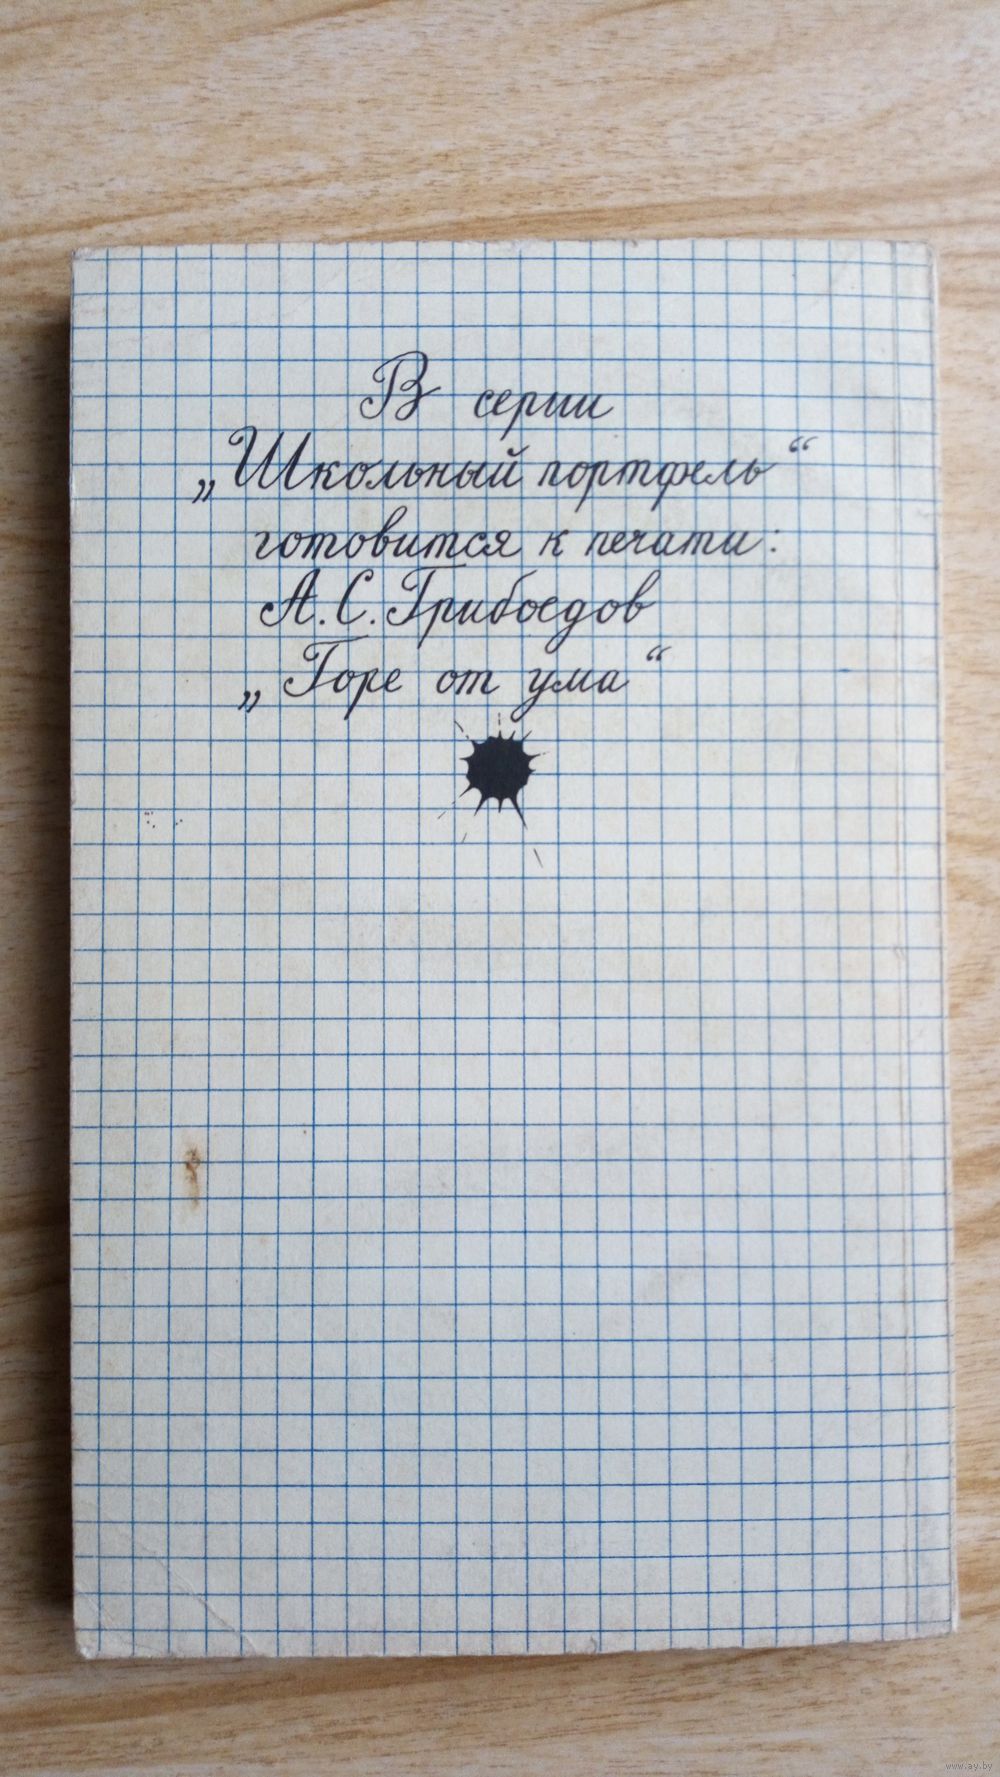 В серии
„Школьный портфель“
готовится к печати:
А.С.Грибоедов
„Горе от ума“
www.ay.by